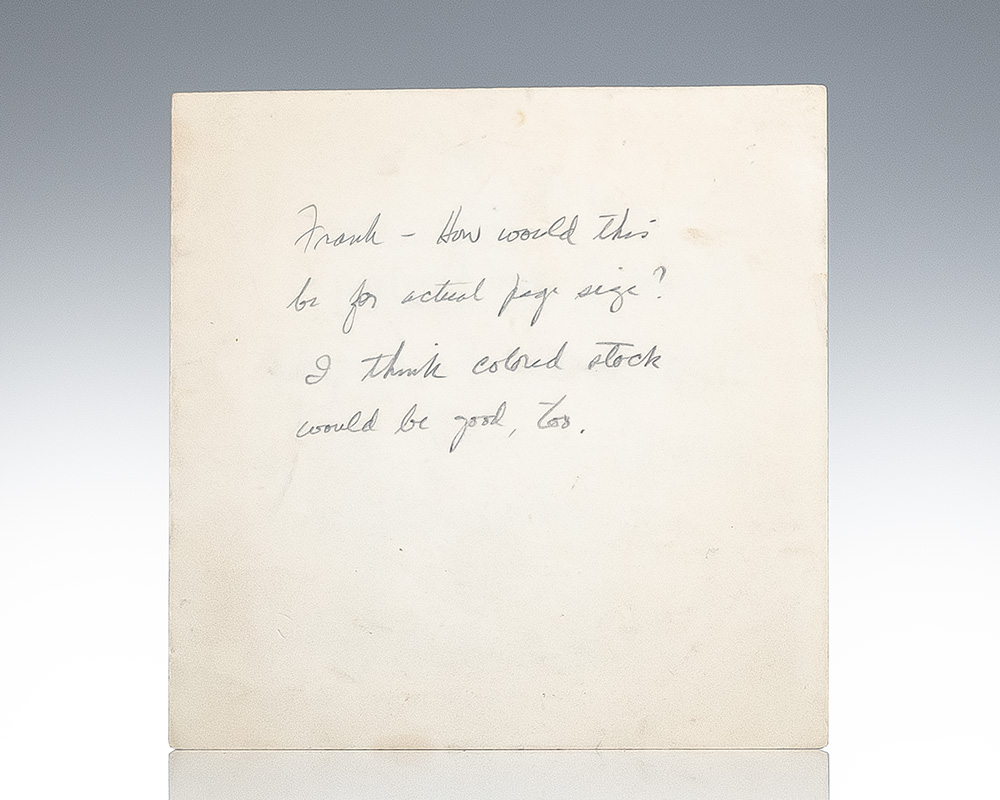 Frank – How would this
be for actual page size?
I think colored stock
would be good, too.